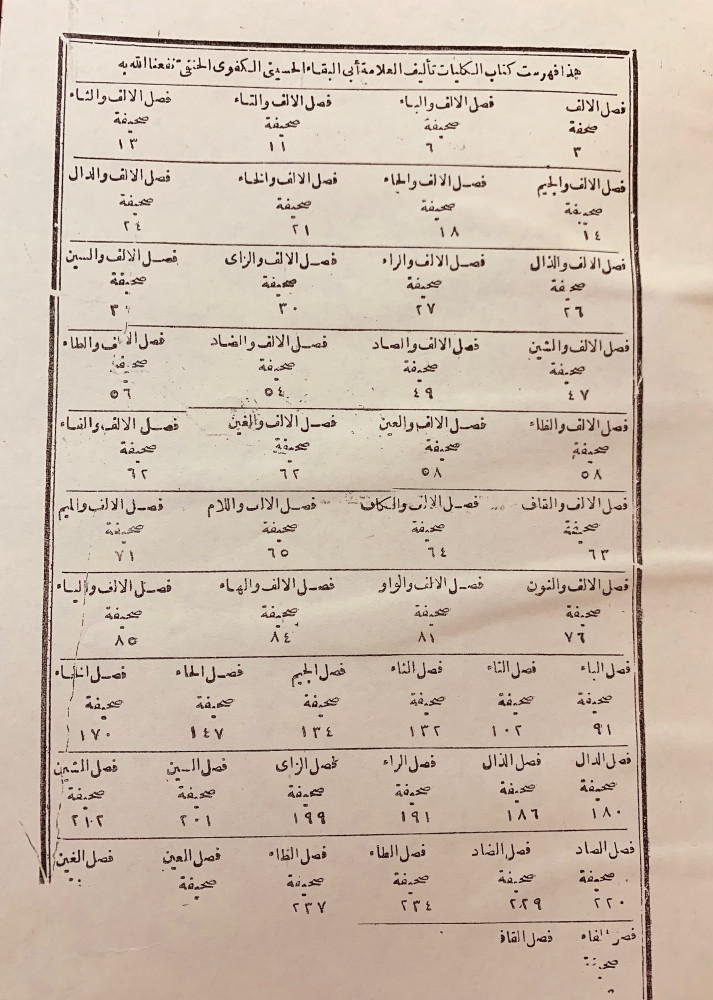 هذا فهرست كتاب الكليات تأليف العلامة أبي البقاء الحسيني الكفوى الحنفي نفعنا الله به
فصل الالف فصل الالف والباء فصل الالف والتاء فصل الالف والثاء
صحفة صحيفة صحيفة صحيفة
٣ ٦ ١١ ١٣
فصل الالف والجيم فصل الالف والحاء فصل الالف والخاء فصل الالف والدال
صحيفة صحيفة صحيفة صحيفة
١٤ ١٨ ٢١ ٢٤
فصل الالف والذال فصل الالف والراء فصل الالف والزاى فصل الالف والسين
صحيفة صحيفة صحيفة صحيفة
٢٦ ٢٧ ٣٠
فصل الالف والشين فصل الالف والصاد فصل الالف والضاد فصل الالف والطاء
صحيفة صحيفة صحيفة صحيفة
٤٧ ٤٩ ٥٤ ٥٦
فصل الالف والظاء فصل الالف والعين فصل الالف والغين فصل الالف والفاء
صحيفة صحيفة صحيفة صحيفة
٥٨ ٥٨ ٦٢ ٦٢
فصل الالف والقاف فصل الالف والكاف فصل الالف واللام فصل الالف والميم
صحيفة صحيفة صحيفة صحيفة
٦٣ ٦٤ ٦٥ ٧١
فصل الالف والنون فصل الالف والواو فصل الالف والهاء فصل الالف والياء
صحيفة صحيفة صحيفة صحيفة
٧٦ ٨١ ٨٤ ٨٥
فصل الباء فصل التاء فصل الثاء فصل الجيم فصل الحاء فصل الخاء
صحيفة صحيفة صحيفة صحيفة صحيفة صحيفة
٩١ ١٠٢ ١٣٢ ١٣٤ ١٤٧ ١٧٠
فصل الدال فصل الذال فصل الراء فصل الزاى فصل السين فصل الشين
صحيفة صحيفة صحيفة صحيفة صحيفة صحيفة
١٨٠ ١٨٦ ١٩١ ١٩٩ ٢٠١ ٢١٢
فصل الصاد فصل الضاد فصل الطاء فصل الظاء فصل العين فصل الغين
صحيفة صحيفة صحيفة صحيفة صحيفة
٢٢٠ ٢٢٩ ٢٣٤ ٢٣٧
فصل الفاء فصل القاف